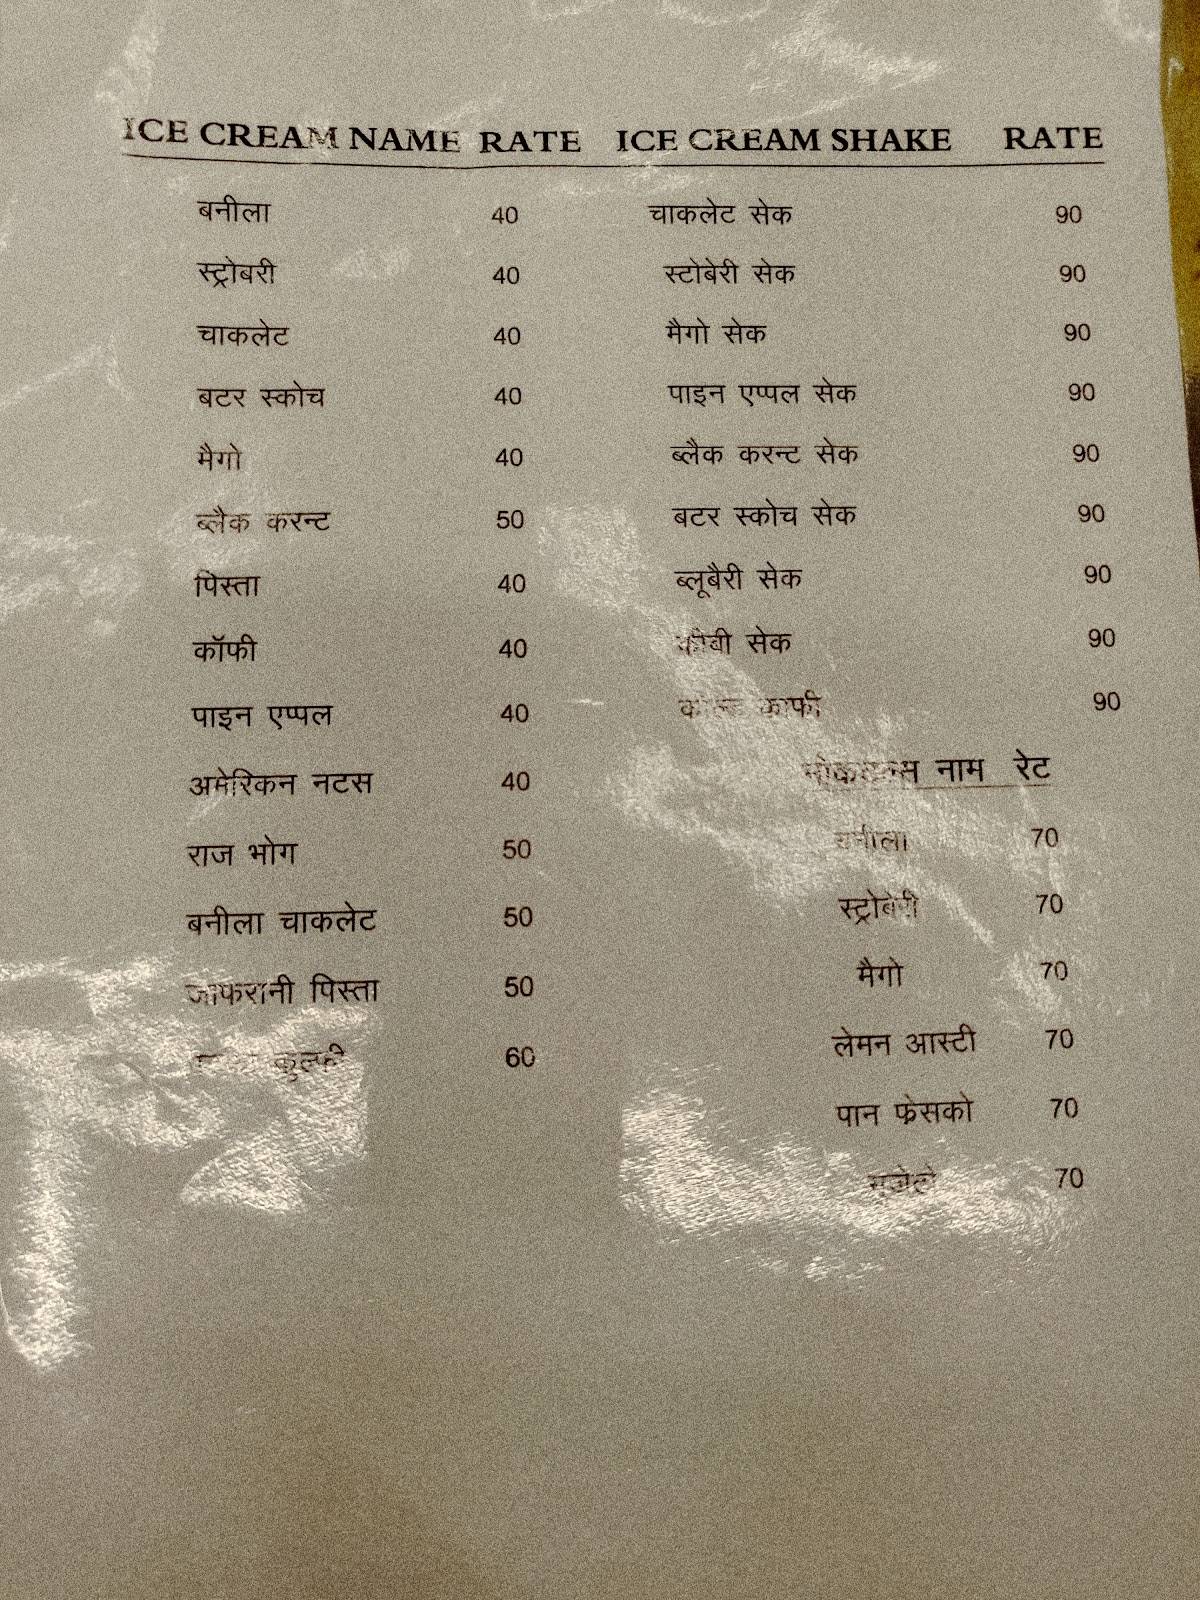 ICE CREAM NAME RATE
बनीला 40
स्ट्रोबरी 40
चाकलेट 40
बटर स्कोच 40
मैगो 40
ब्लैक करन्ट 50
पिस्ता 40
कॉफी 40
पाइन एप्पल 40
अमेरिकन नटस 40
राज भोग 50
बनीला चाकलेट 50
जाफरानी पिस्ता 50
कुल्फी 60
ICE CREAM SHAKE RATE
चाकलेट सेक 90
स्टोबेरी सेक 90
मैगो सेक 90
पाइन एप्पल सेक 90
ब्लैक करन्ट सेक 90
बटर स्कोच सेक 90
ब्लूबैरी सेक 90
सेक 90
काफी 90
नाम रेट
70
स्ट्रोबेरी 70
मैगो 70
लेमन आस्टी 70
पान फ्रेसको 70
70